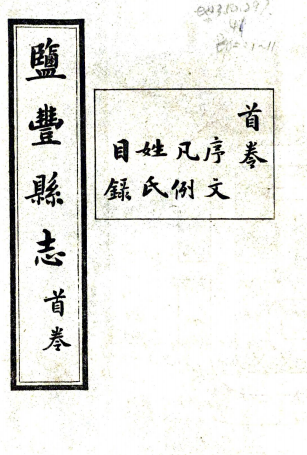 首卷
序文
凡例
姓氏
目錄
鹽豐縣志 首卷